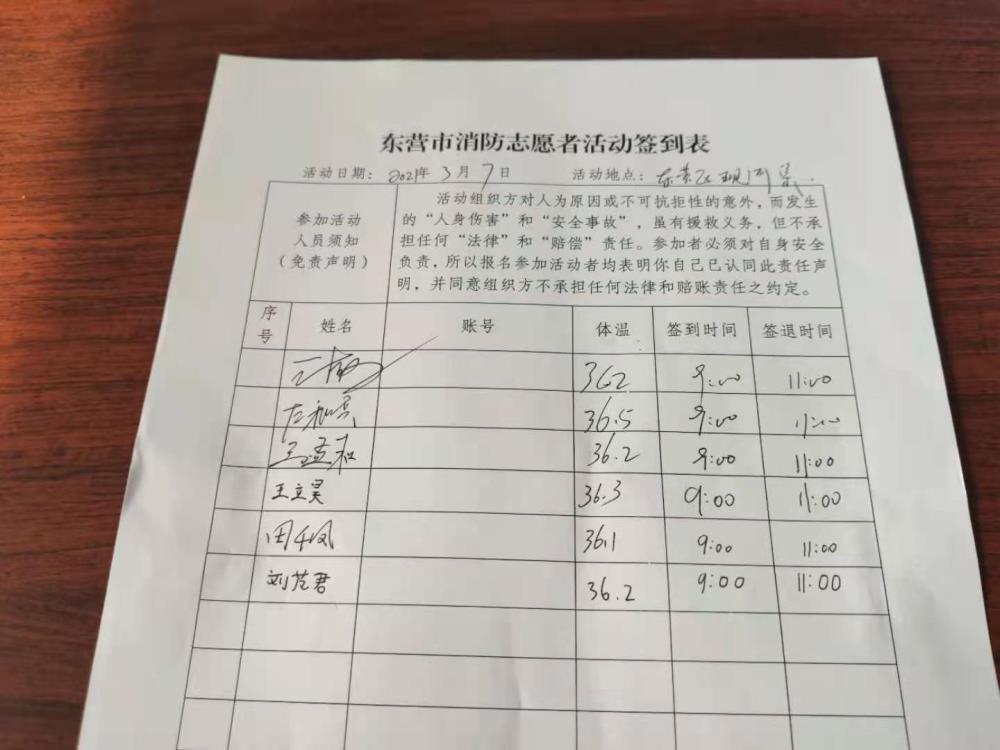 东营市消防志愿者活动签到表
活动日期：2021年 3 月 7 日 活动地点：东营区
参加活动
人员须知
（免责声明）
活动组织方对人为原因或不可抗拒性的意外，而发生
的“人身伤害”和“安全事故”，虽有援救义务，但不承
担任何“法律”和“赔偿”责任。参加者必须对自身安全
负责，所以报名参加活动者均表明你自己已认同此责任声
明，并同意组织方不承担任何法律和赔账责任之约定。
序号 姓名 账号 体温 签到时间 签退时间
362 9:00 11:00
36.5 9:00 11:00
王孟和 36.2 9:00 11:00
王立昊 36.3 9:00 11:00
田千凤 36.1 9:00 11:00
刘范君 36.2 9:00 11:00